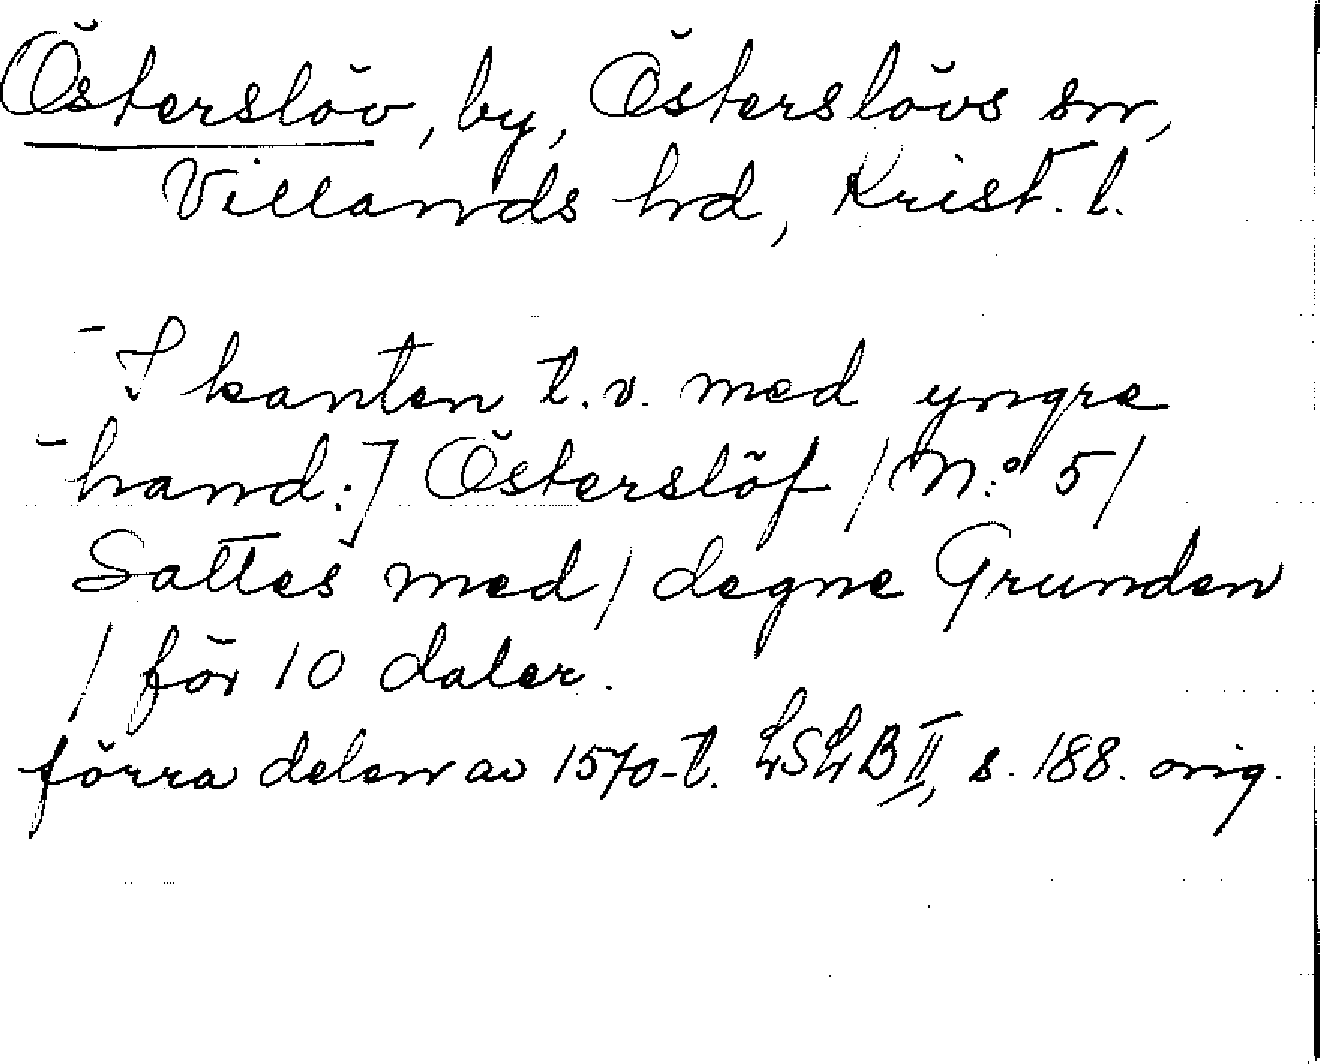 Österslöv, by, Österslövs sn,
Villands hd, Krist. l.
I kanten t.v. med yngre
hand:] Österslöf / N:o 5 /
Sattes med / degne Grunden
/ för 10 daler.
förra delen av 1570-t. LSLB II, s. 188. orig.